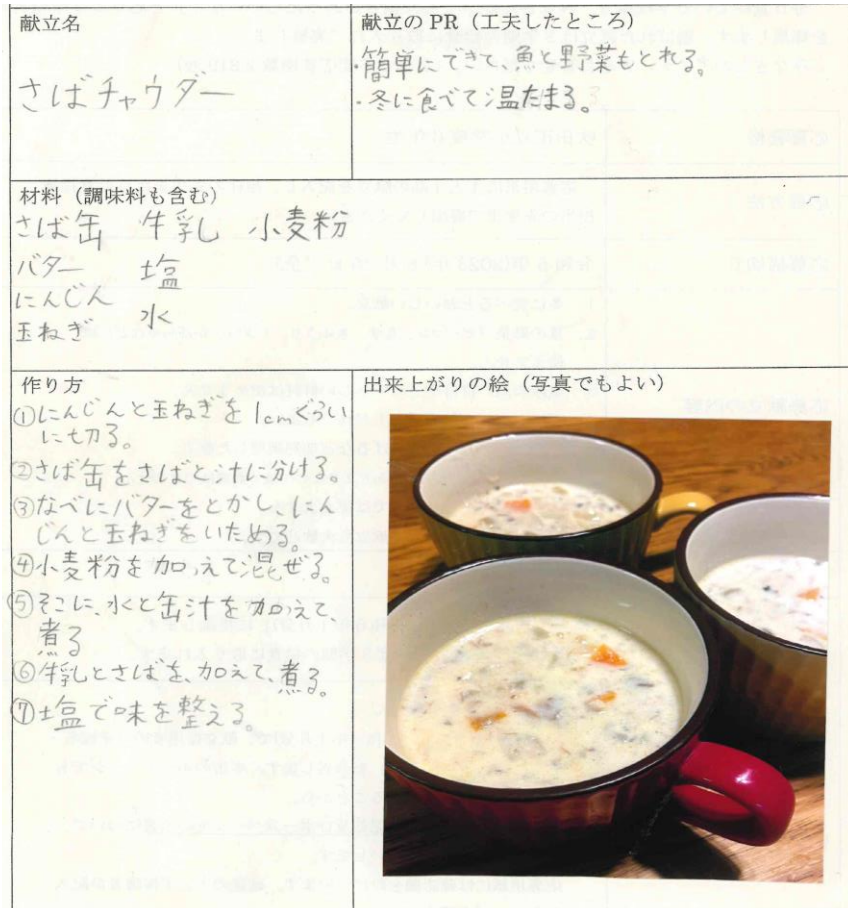 献立名
さばチャウダー
献立の PR（工夫したところ）
・簡単にできて魚と野菜もとれる。
・冬に食べて温たまる。
材料（調味料も含む）
さば缶 牛乳 小麦粉
バター 塩
にんじん
玉ねぎ 水
作り方
①にんじんと玉ねぎを1cmぐらい
に切る。
②さば缶をさばと汁に分ける。
③なべにバターをとかし、にん
じんと玉ねぎをいためる。
④小麦粉を加えて混ぜる。
⑤そこに、水と缶汁を加えて
煮る
⑥牛乳とさばを加えて、煮る。
⑦塩で味を整える。
出来上がりの絵（写真でもよい）